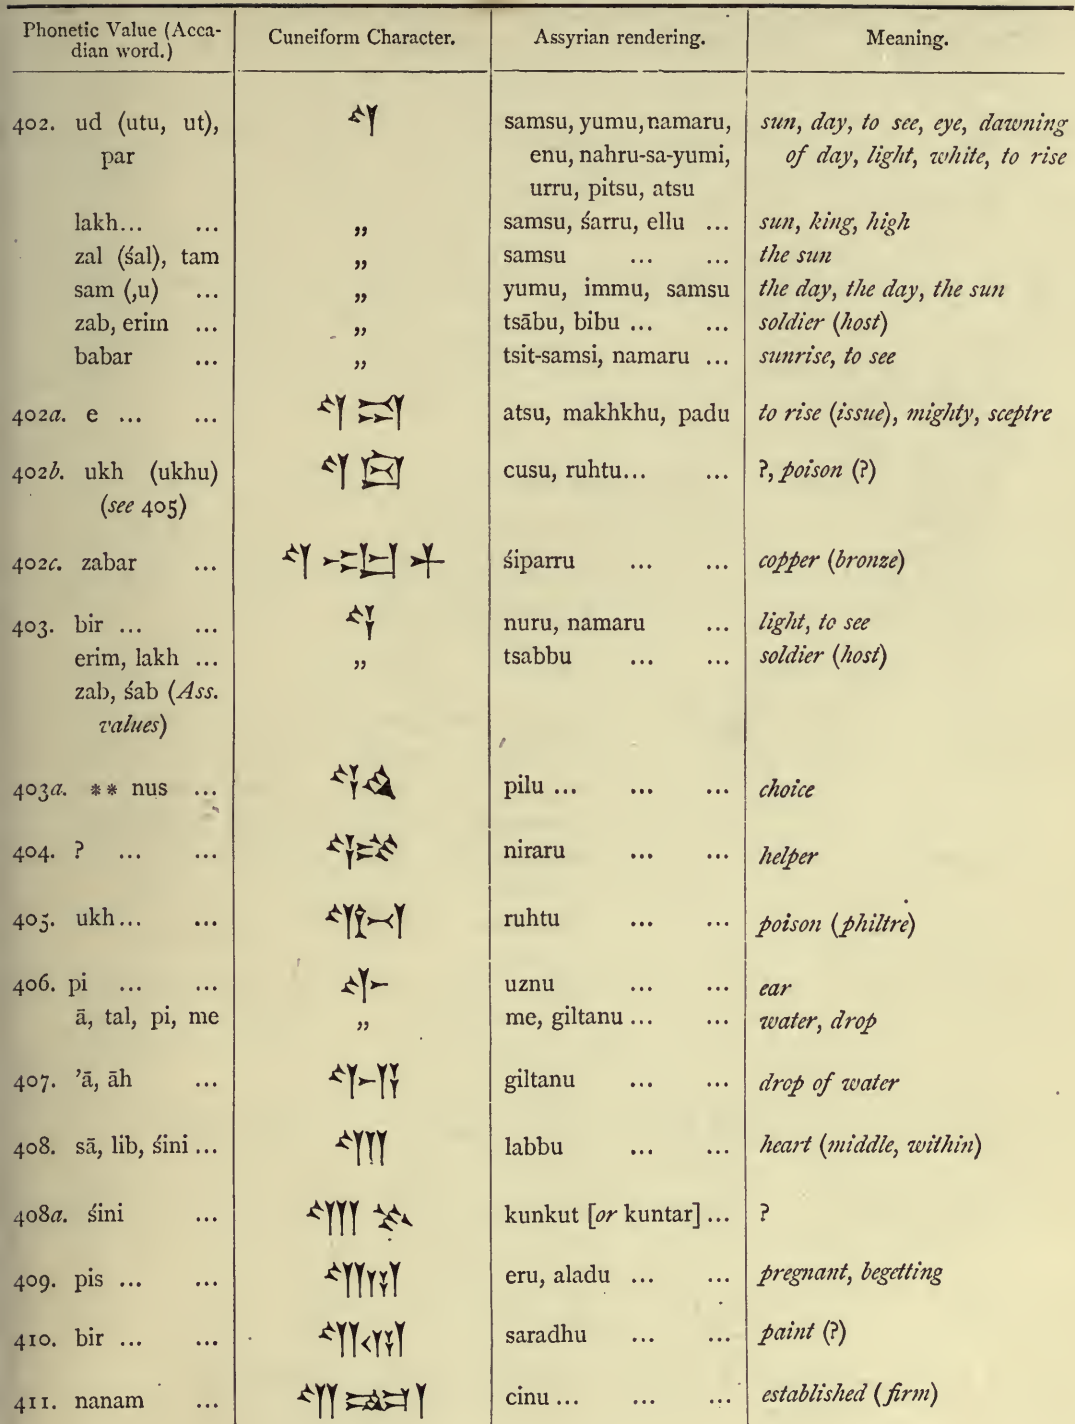 Phonetic Value (Acca- Cuneiform Character. Assyrian rendering. Meaning.
dian word.)
402. ud (utu, ut), 𒌓 samsu, yumu, namaru, sun, day, to see, eye, dawning
par enu, nahru-sa-yumi, of day, light, white, to rise
urru, pitsu, atsu
lakh... ... „ samsu, śarru, ellu ... sun, king, high
zal (śal), tam „ samsu ... ... the sun
sam (,u) ... „ yumu, immu, samsu the day, the day, the sun
zab, erim ... „ tsābu, bibu ... ... soldier (host)
babar ... „ tsit-samsi, namaru ... sunrise, to see
402a. e ... ... 𒌓𒁺 atsu, makhkhu, padu to rise (issue), mighty, sceptre
402b. ukh (ukhu) 𒌓𒆵 cusu, ruhtu... ... ?, poison (?)
(see 405)
402c. zabar ... 𒌓𒅗𒁇 śiparru ... ... copper (bronze)
403. bir ... ... 𒂟 nuru, namaru ... light, to see
erim, lakh ... „ tsabbu ... ... soldier (host)
zab, śab (Ass.
values)
403a. ** nus ... pilu ... ... ... choice
404. ? ... ... niraru ... ... helper
405. ukh... ... ruhtu ... ... poison (philtre)
406. pi ... ... 𒉿 uznu ... ... ear
ā, tal, pi, me „ me, giltanu ... ... water, drop
407. ’ā, āh ... giltanu ... ... drop of water
408. sā, lib, śini ... 𒊮 labbu ... ... heart (middle, within)
408a. śini ... kunkut [or kuntar] ... ?
409. pis ... ... eru, aladu ... ... pregnant, begetting
410. bir ... ... saradhu ... ... paint (?)
411. nanam ... cinu ... ... ... established (firm)